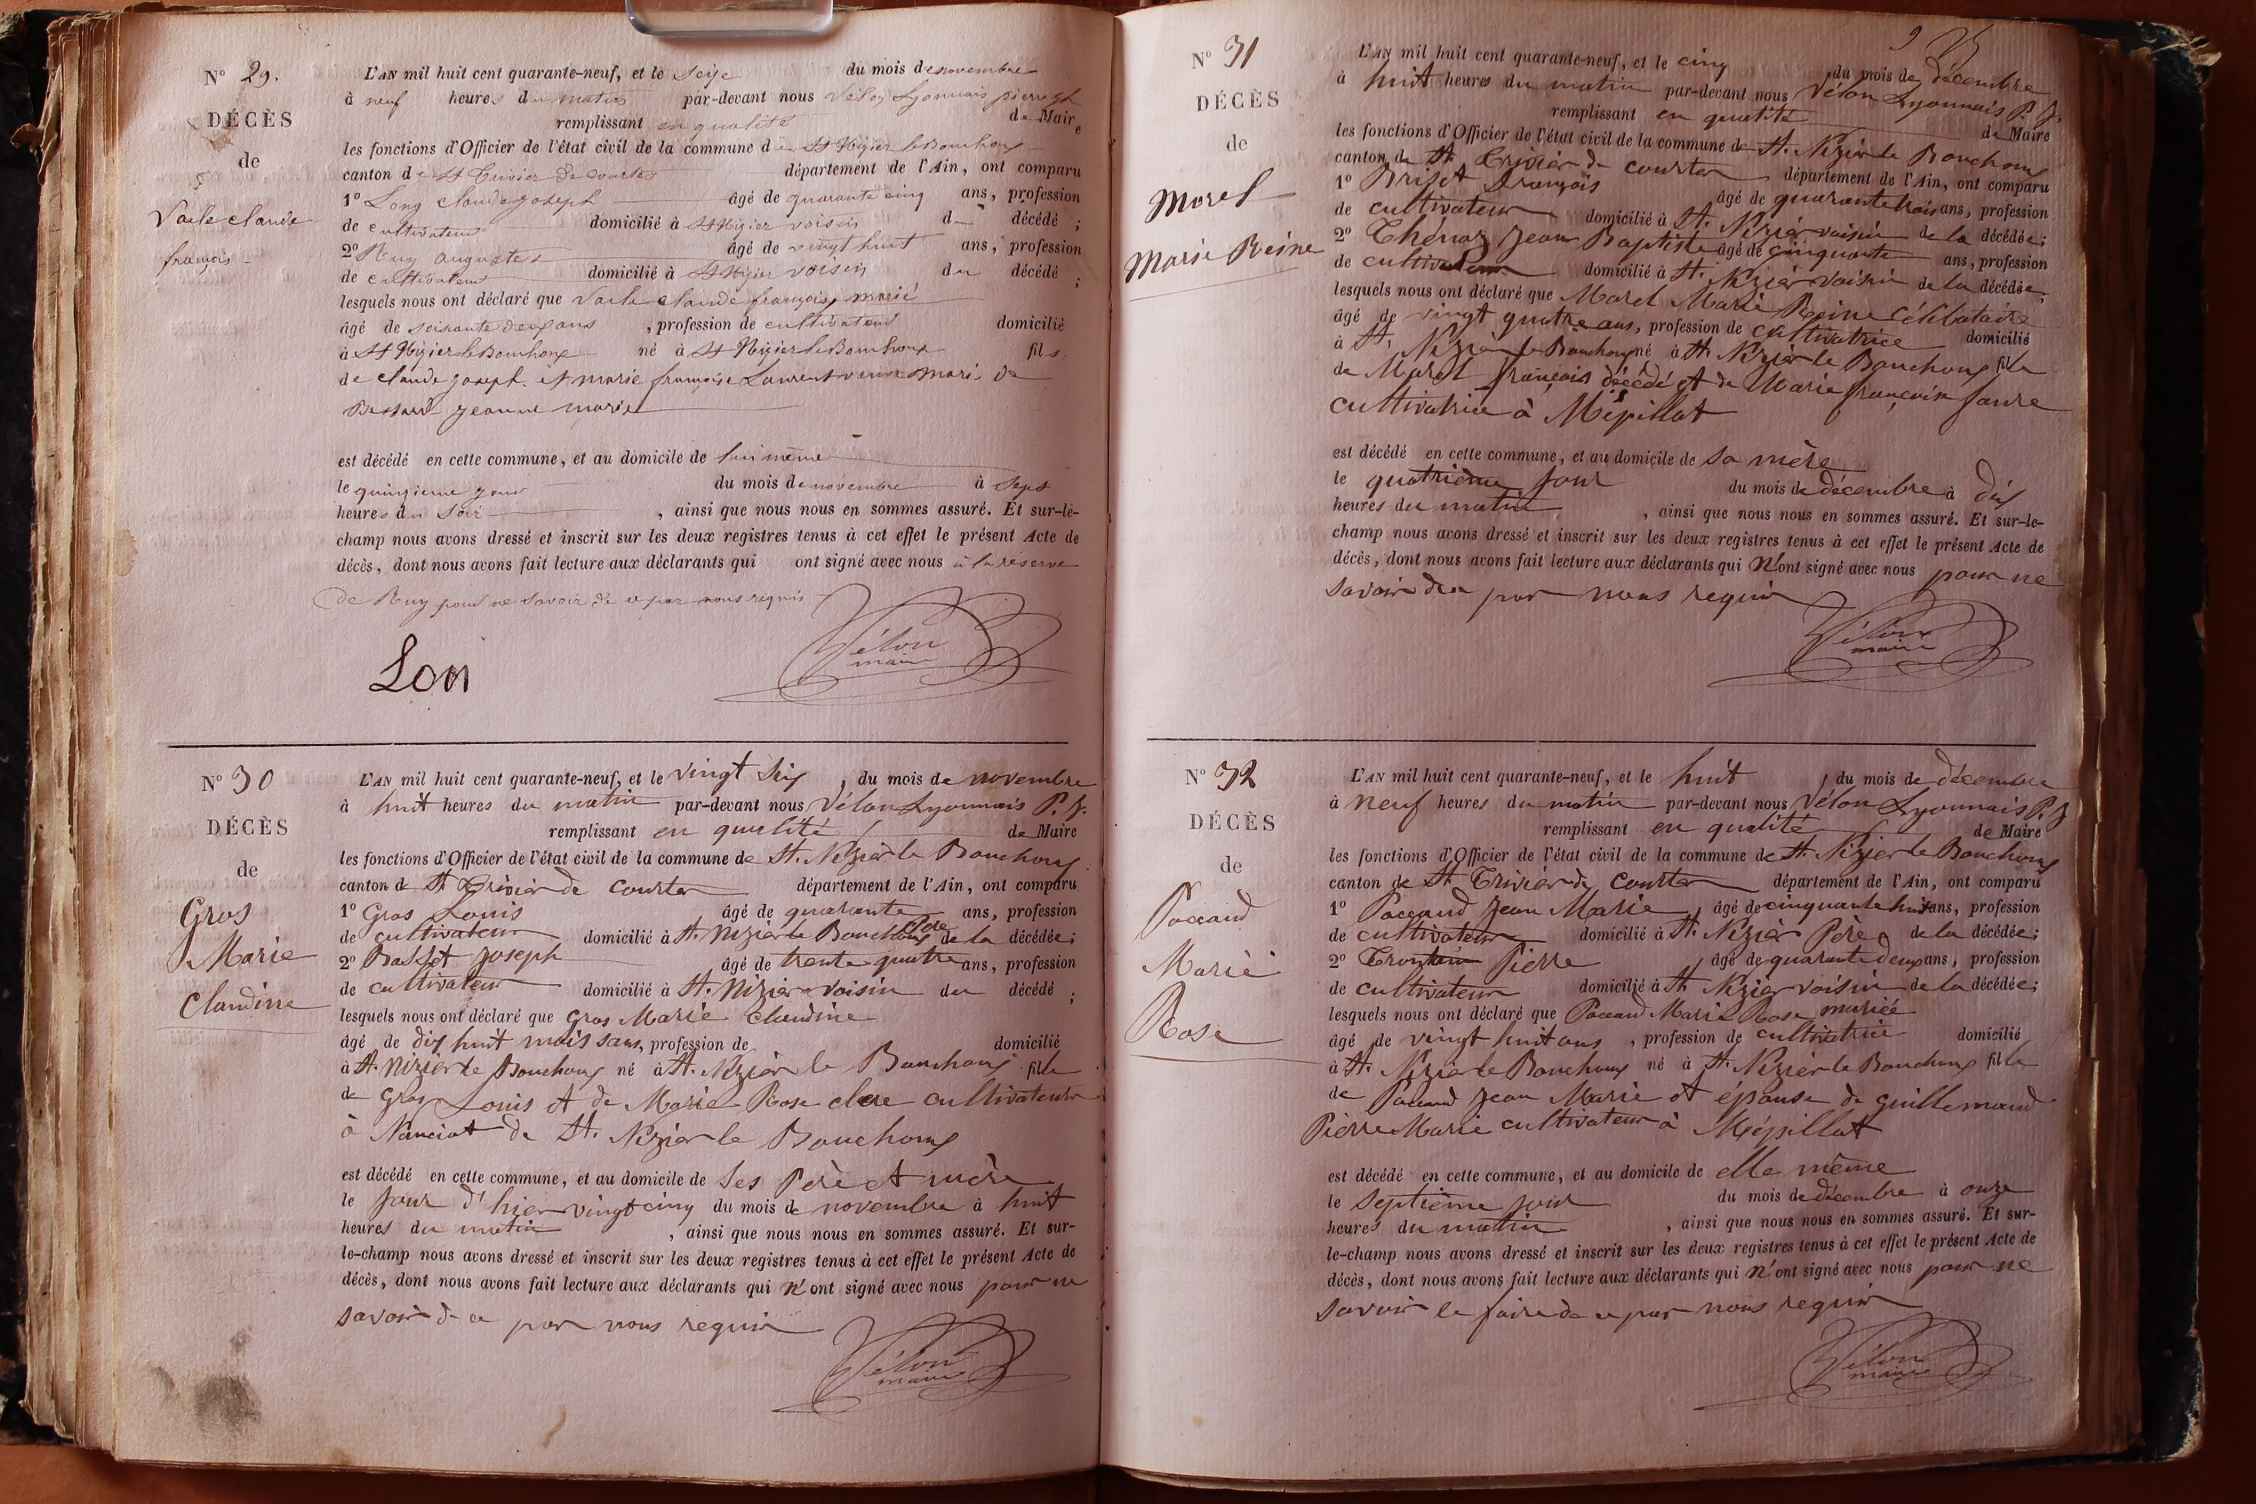 N° 29.
DÉCÈS
de
Vaile claude
françois
L'AN mil huit cent quarante-neuf, et le seize du mois de novembre
à neuf heures du matin par-devant nous Vélon Lyonnais pierre
remplissant en qualité de Maire
les fonctions d'Officier de l'état civil de la commune de St Nizier le Bouchoux
canton de St Trivier de courtes département de l'Ain, ont comparu
1° Long claude joseph âgé de quarante cinq ans, profession
de cultivateur domicilié à St Nizier voisin d décédé ;
2° Ruy auguste âgé de vingt huit ans, profession
de cultivateur domicilié à St Nizier voisin du décédé ;
lesquels nous ont déclaré que Vaile claude françois, marié
âgé de soixante deux ans , profession de cultivateur domicilié
à St Nizier le Bouchoux né à St Nizier le Bouchoux fils
de claude joseph et marie françoise Laurent mari de
jeanne marie
est décédé en cette commune, et au domicile de lui même
le quinzieme jour du mois de novembre à sept
heures du soir , ainsi que nous nous en sommes assuré. Et sur-le-
champ nous avons dressé et inscrit sur les deux registres tenus à cet effet le présent Acte de
décès, dont nous avons fait lecture aux déclarants qui ont signé avec nous à la réserve
de Ruy pour ne savoir de ce par nous requis
Lon
Vélon
maire
N° 30
DÉCÈS
de
Gros
Marie
Claudine
L'AN mil huit cent quarante-neuf, et le vingt six , du mois de novembre
à huit heures du matin par-devant nous Vélon Lyonnais P. J.
remplissant en qualité de Maire
les fonctions d'Officier de l'état civil de la commune de St. Nizier le Bouchoux
canton de St Trivier de Courtes département de l'Ain, ont comparu
1° Gros Louis âgé de quarante ans, profession
de cultivateur domicilié à St. Nizier le Bouchoux Père de la décédée ;
2° Basset Joseph âgé de trente quatre ans, profession
de cultivateur domicilié à St. Nizier voisin du décédé ;
lesquels nous ont déclaré que Gros Marie Claudine
âgé de dix huit mois sans, profession de domicilié
à St. Nizier le Bouchoux né à St. Nizier le Bouchoux fille
de Gros Louis et de Marie Rose clere cultivateurs
à Nanciat de St. Nizier le Bouchoux
est décédé en cette commune, et au domicile de ses Père et mère
le jour d'hier vingt cinq du mois de novembre à huit
heures du matin , ainsi que nous nous en sommes assuré. Et sur-
le-champ nous avons dressé et inscrit sur les deux registres tenus à cet effet le présent Acte de
décès, dont nous avons fait lecture aux déclarants qui n'ont signé avec nous pour ne
savoir de ce par nous requis
Vélon
maire
9
N° 31
DÉCÈS
de
Morel
Marie Reine
L'AN mil huit cent quarante-neuf, et le cinq du mois de décembre
à huit heures du matin par-devant nous Vélon Lyonnais P. J.
remplissant en qualité de Maire
les fonctions d'Officier de l'état civil de la commune de St. Nizier le Bouchoux
canton de St. Trivier de courtes département de l'Ain, ont comparu
1° Briset françois âgé de quarante trois ans, profession
de cultivateur domicilié à St. Nizier voisin de la décédée ;
2° Thénoz Jean Baptiste âgé de cinquante ans, profession
de cultivateur domicilié à St. Nizier voisin de la décédée ;
lesquels nous ont déclaré que Morel Marie Reine célibataire
âgé de vingt quatre ans, profession de cultivatrice domicilié
à St. Nizier le Bouchoux né à St. Nizier le Bouchoux fille
de Morel françois décédé et de Marie françoise favre
cultivatrice à Mépillat
est décédé en cette commune, et au domicile de sa mère
le quatrième jour du mois de décembre à dix
heures du matin , ainsi que nous nous en sommes assuré. Et sur-le-
champ nous avons dressé et inscrit sur les deux registres tenus à cet effet le présent Acte de
décès, dont nous avons fait lecture aux déclarants qui n'ont signé avec nous pour ne
savoir de ce par nous requis
Vélon
maire
N° 32
DÉCÈS
de
Poccaud
Marie
Rose
L'AN mil huit cent quarante-neuf, et le huit , du mois de décembre
à neuf heures du matin par-devant nous Vélon Lyonnais P. J
remplissant en qualité de Maire
les fonctions d'Officier de l'état civil de la commune de St. Nizier le Bouchoux
canton de St Trivier de Courtes département de l'Ain, ont comparu
1° Poccaud Jean Marie , âgé de cinquante huit ans, profession
de cultivateur domicilié à St. Nizier Père de la décédée ;
2° Pierre , âgé de quarante deux ans, profession
de cultivateur domicilié à St Nizier voisin de la décédée ;
lesquels nous ont déclaré que Poccaud Marie Rose mariée
âgé de vingt huit ans , profession de cultivatrice domicilié
à St. Nizier le Bouchoux né à St. Nizier le Bouchoux fille
de Poccaud Jean Marie et épouse de guillemaud
Pierre Marie cultivateur à Mépillat
est décédé en cette commune, et au domicile de elle même
le septième jour du mois de décembre à onze
heures du matin , ainsi que nous nous en sommes assuré. Et sur-
le-champ nous avons dressé et inscrit sur les deux registres tenus à cet effet le présent Acte de
décès, dont nous avons fait lecture aux déclarants qui n'ont signé avec nous pour ne
savoir le faire de ce par nous requis
Vélon
maire